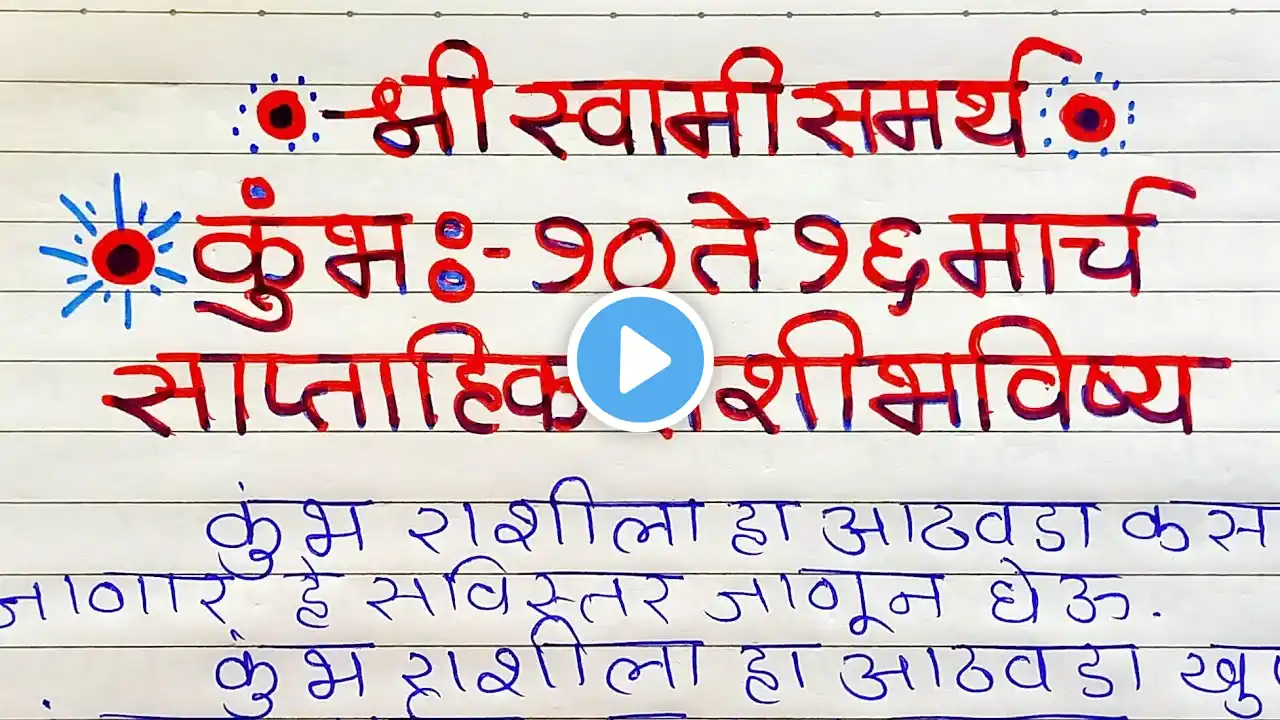 श्री स्वामी समर्थ
कुंभ :- १० ते १६ मार्च
साप्ताहिक राशीभविष्य
कुंभ राशीला हा आठवडा कस
जाणार हे सविस्तर जाणून घेऊ.
कुंभ राशीला हा आठवडा